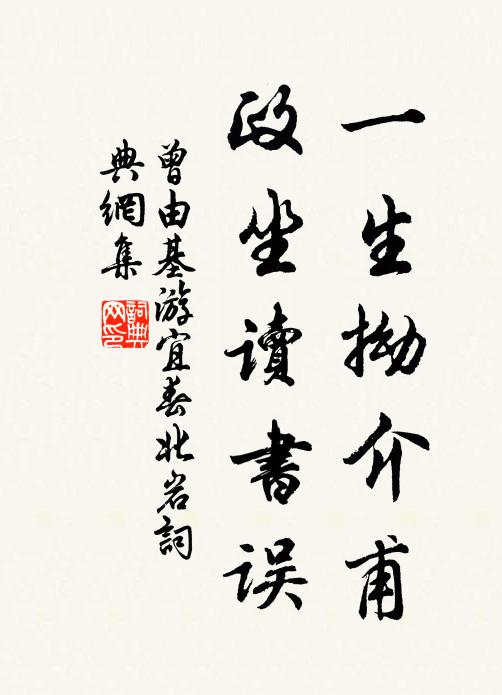 一生拗介甫
政坐讀書误
曾由基游宜春北岩詞
典網集
詞典網印